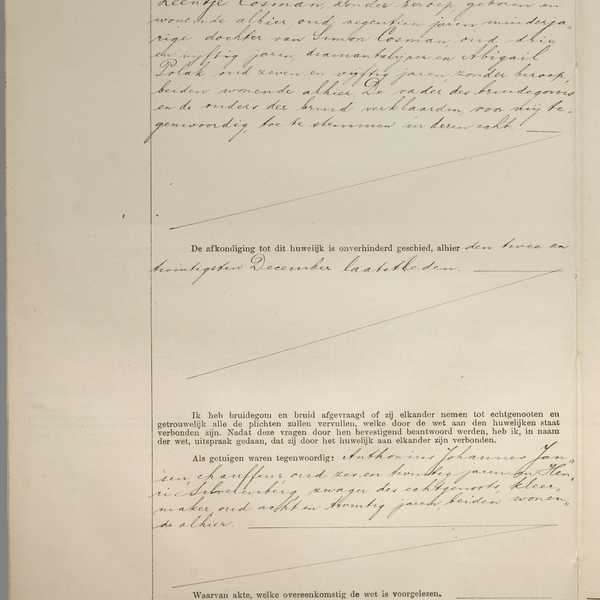 Leentje Cosman, zonder beroep, geboren en
wonende alhier, oud negentien jaren minderja-
rige dochter van Simon Cosman, oud drie
en vijftig jaren, diamantslijper en Abigaïl
Polak oud zeven en vijftig jaren, zonder beroep,
beiden wonende alhier. De vader des bruidegoms
en de ouders der bruid verklaarden, voor mij te-
genwoordig, toe te stemmen in deren echt.
De afkondiging tot dit huwelijk is onverhinderd geschied, alhier den twee en
twintigsten December laatstleden.
Ik heb bruidegom en bruid afgevraagd of zij elkander nemen tot echtgenooten en
getrouwelijk alle de plichten zullen vervullen, welke door de wet aan den huwelijken staat
verbonden zijn. Nadat deze vragen door hen bevestigend beantwoord werden, heb ik, in naam
der wet, uitspraak gedaan, dat zij door het huwelijk aan elkander zijn verbonden.
Als getuigen waren tegenwoordig: Anthonius Johannes Jan-
sen, chauffeur oud zes en twintig jaren en Hen-
ri, zwager des echtgenoots, kleer-
maker, oud acht en twintig jaren beiden wonen-
de alhier.
Waarvan akte, welke overeenkomstig de wet is voorgelezen.